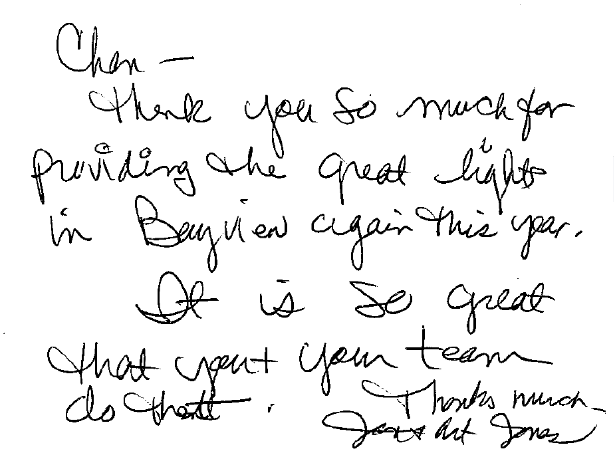 Chan —
Thank you so much for
providing the great lights
in Bayview again this year.
It is so great
that you + your team
do that.
Thanks much -
Jan + Art Jones